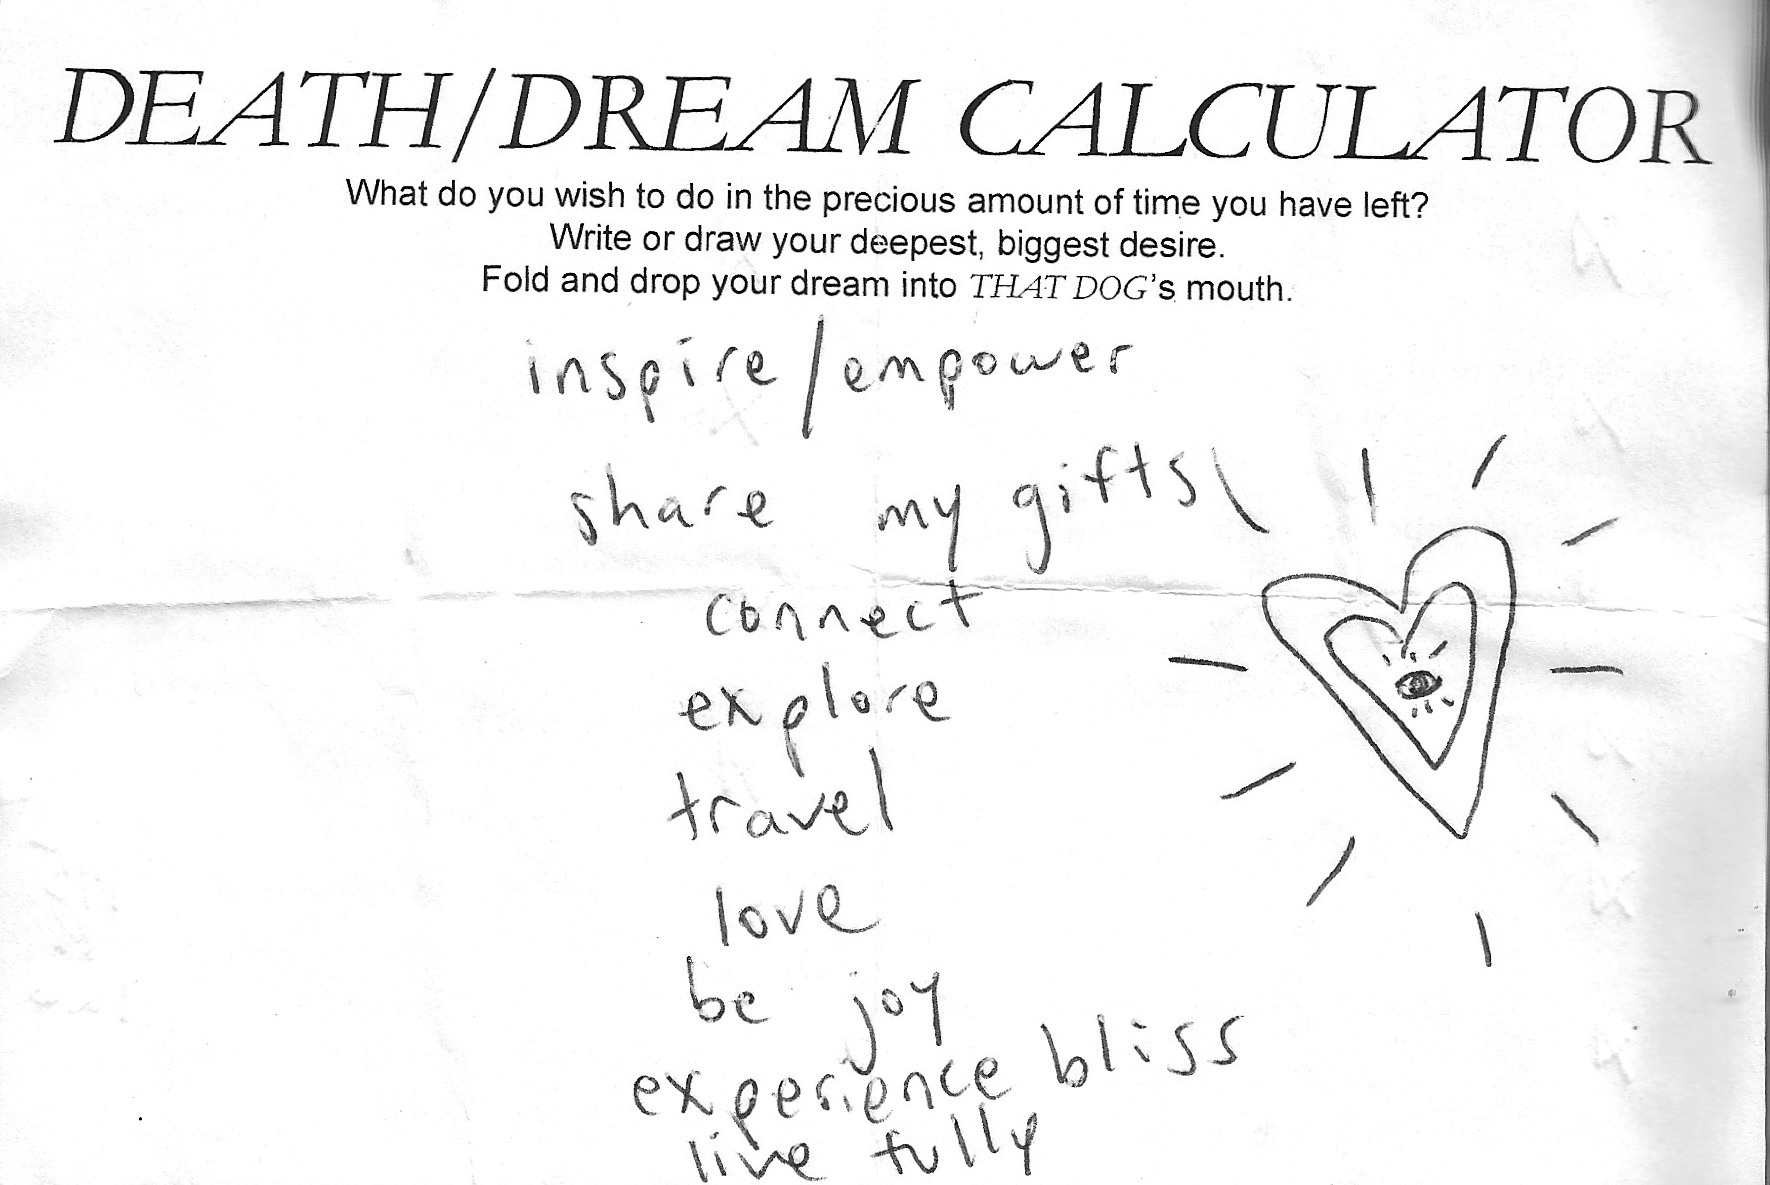 DEATH/DREAM CALCULATOR
What do you wish to do in the precious amount of time you have left?
Write or draw your deepest, biggest desire.
Fold and drop your dream into THAT DOG's mouth.
inspire/empower
share my gifts
connect
explore
travel
love
be joy
experience bliss
live fully